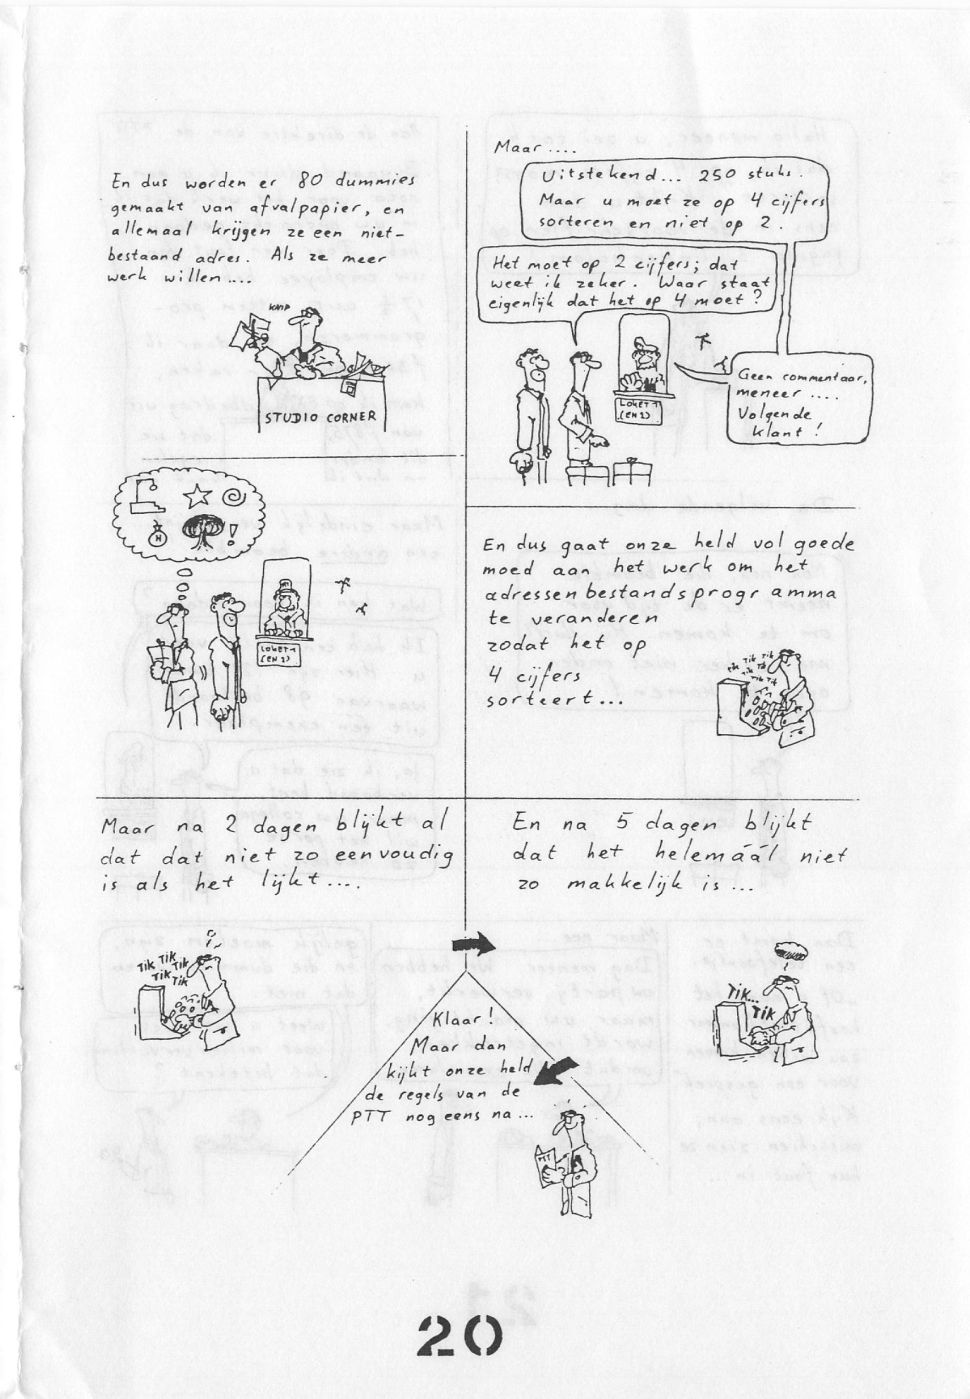 En dus worden er 80 dummies
gemaakt van afvalpapier, en
allemaal krijgen ze een niet-
bestaand adres. Als ze meer
werk willen....
KNIP
STUDIO CORNER
Maar ....
Uitstekend... 250 stuks.
Maar u moet ze op 4 cijfers
sorteren en niet op 2.
Het moet op 2 cijfers; dat
weet ik zeker. Waar staat
eigenlijk dat het op 4 moet?
Geen commentaar,
meneer ....
Volgende
klant!
LOKET 1
(EN 2)
LOKET 1
(EN 2)
En dus gaat onze held vol goede
moed aan het werk om het
adressenbestandsprogramma
te veranderen
zodat het op
4 cijfers
sorteert...
TIK TIK
TIK TIK
TIK TIK
Maar na 2 dagen blijkt al
dat dat niet zo eenvoudig
is als het lijkt....
TIK TIK
TIK TIK
TIK
En na 5 dagen blijkt
dat het helemáál niet
zo makkelijk is...
TIK...
TIK
Klaar!
Maar dan
kijkt onze held
de regels van de
PTT nog eens na...
PTT
20